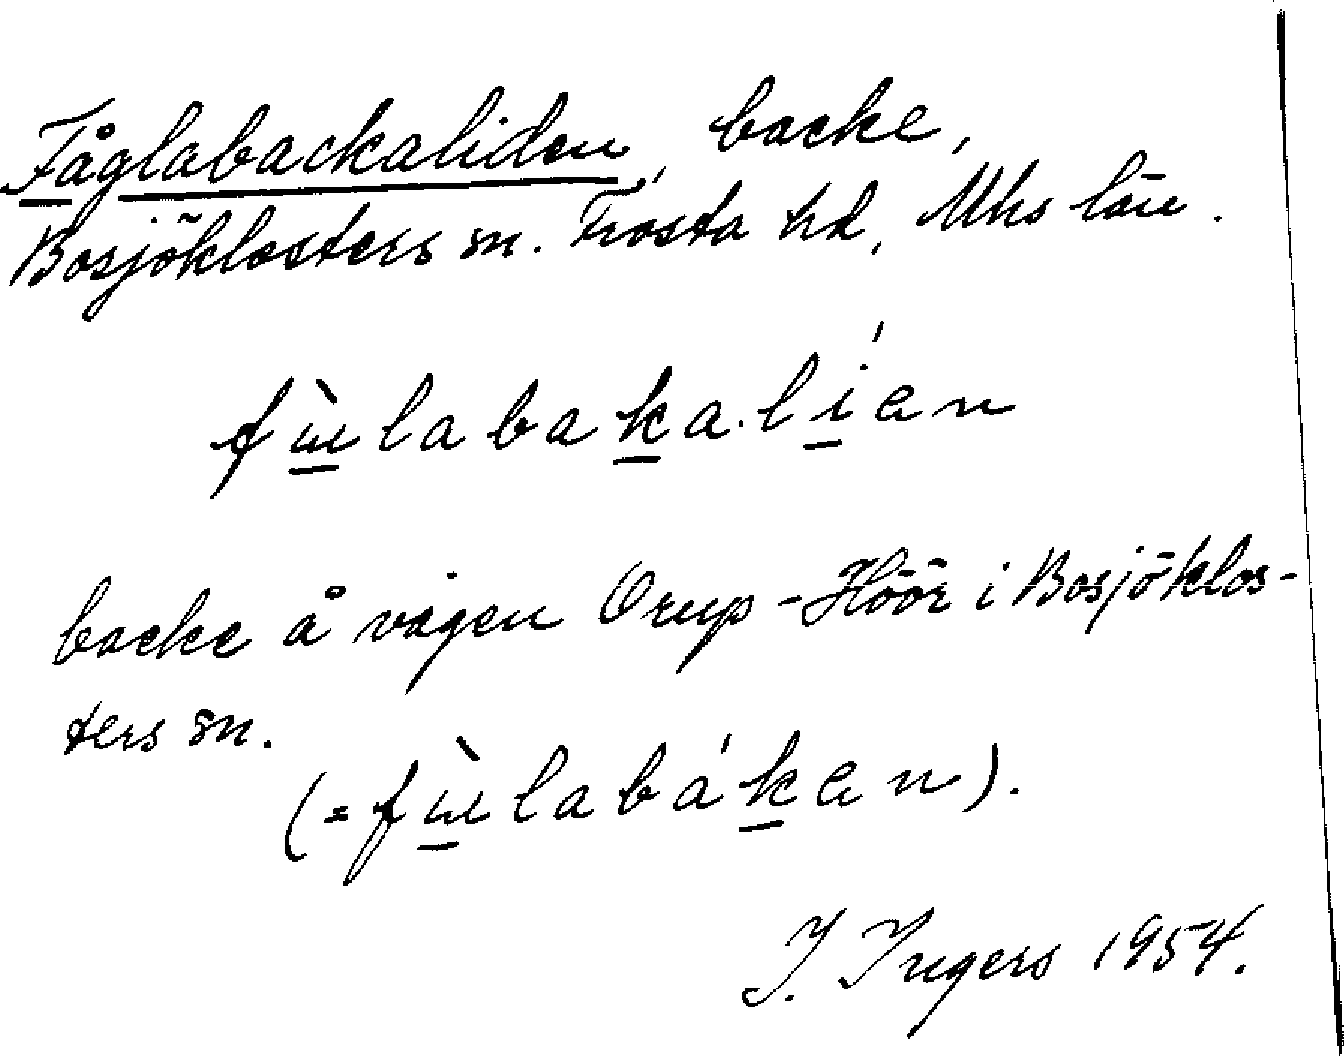 Fåglabackaliden, backe,
Bosjöklosters sn. Frosta hd, Mhs län.
fɯ̀labakalían
backe å vägen Orup-Höör i Bosjöklos-
ters sn.
(=fɯ̀labákan).
I. Ingers 1954.